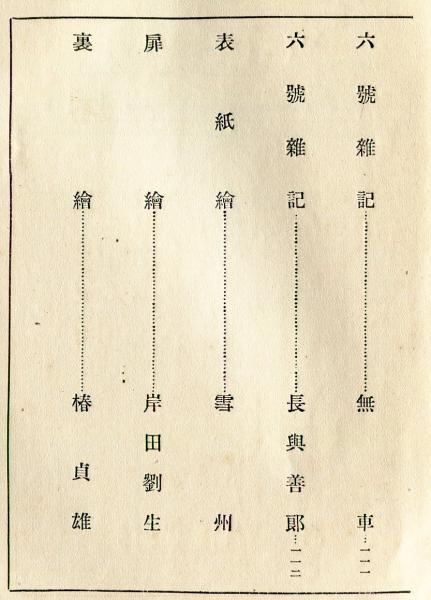 六號雜記……無車…一一一
六號雜記……長與善郞…一一二
表紙繪……雪州
扉繪……岸田劉生
裏繪……椿貞雄